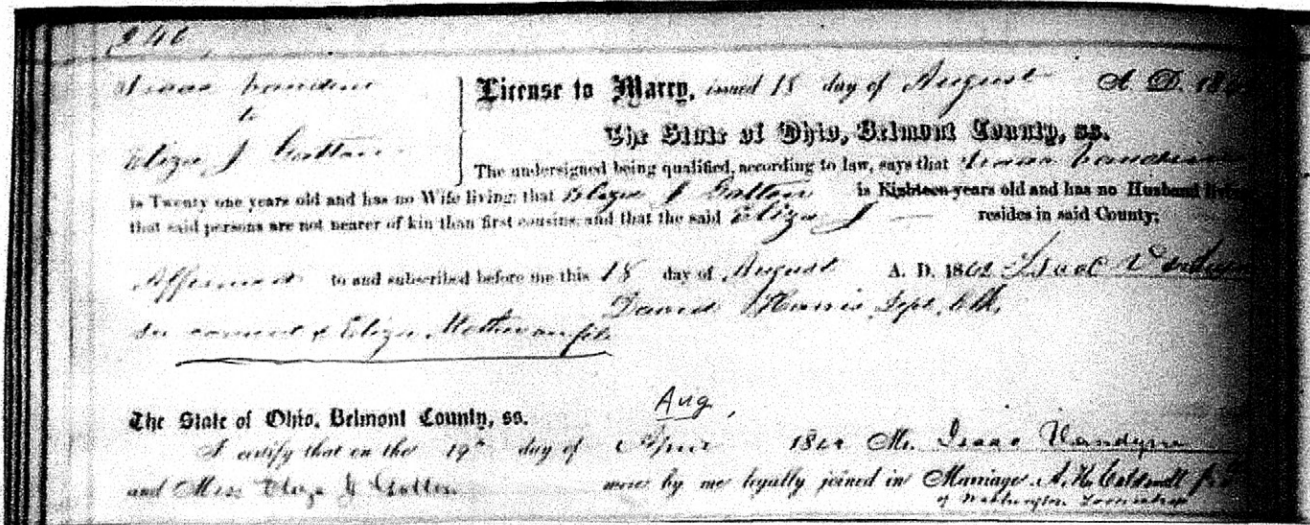 240
Isaac Vandine
to
Eliza J Gatten
License to Marry, issued 18 day of August A. D. 186
The State of Ohio, Belmont County, ss.
The undersigned being qualified, according to law, says that Isaac Vandine
is Twenty one years old and has no Wife living; that Eliza J Gatten is Eighteen years old and has no Husband living
that said persons are not nearer of kin than first cousins; and that the said Eliza J resides in said County;
Affirmed to and subscribed before me this 18 day of August A. D. 1862 Isaac
David Harris Dept. Clk
consent of Eliza Mother on file
Aug
The State of Ohio, Belmont County, ss.
I certify that on the 19th day of April 1862 Mr. Isaac Vandyne
and Miss Eliza J Gatten were by me legally joined in Marriage A. H. Caldwell
of Washington Township